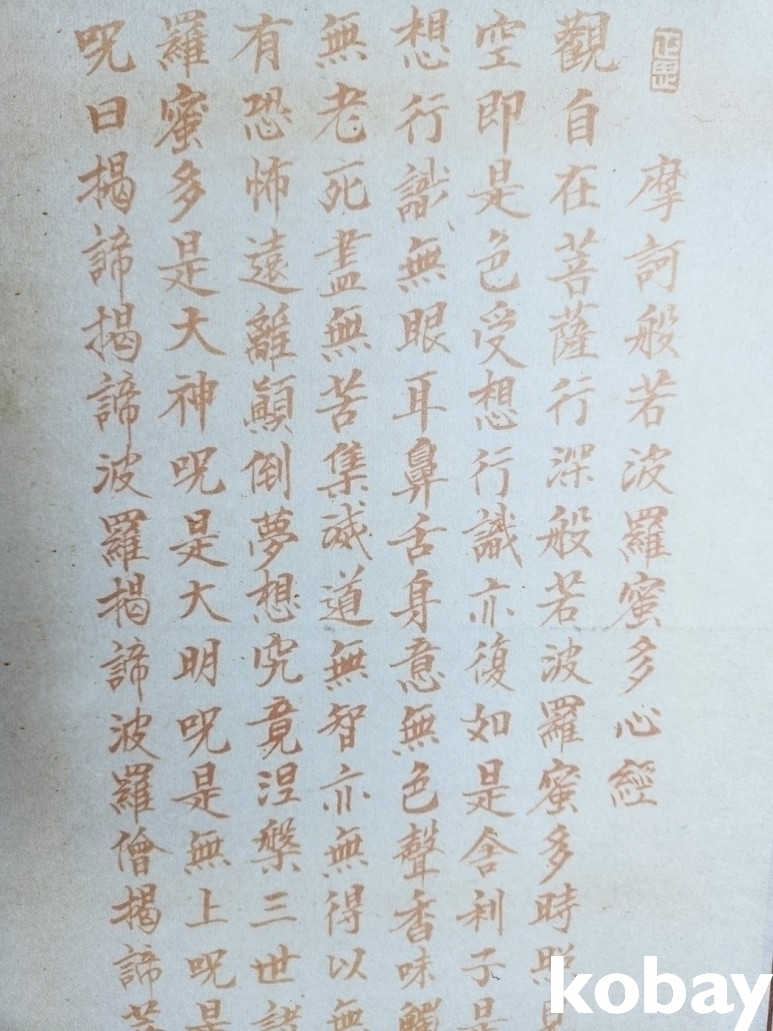 摩訶般若波羅蜜多心經
觀自在菩薩行深般若波羅蜜多時照見
空即是色受想行識亦復如是舍利子是
想行識無眼耳鼻舌身意無色聲香味觸
無老死盡無苦集滅道無智亦無得以無
有恐怖遠離顛倒夢想究竟涅槃三世諸
羅蜜多是大神呪是大明呪是無上呪是
呪曰揭諦揭諦波羅揭諦波羅僧揭諦菩
kobay